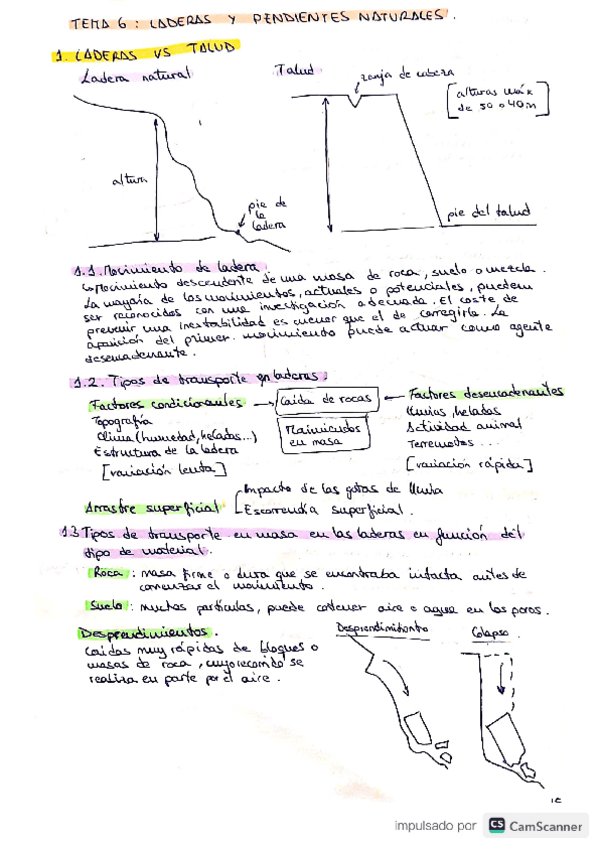 TEMA 6: LADERAS Y PENDIENTES NATURALES.
1. LADERAS VS TALUD
Ladera natural
Talud
zanja de cabeza
[alturas máx
de 30 o 40m]
altura
pie de
la
ladera
pie del talud
1.1. Movimiento de ladera.
↳ Movimiento descendente de una masa de roca, suelo o mezcla.
La mayoría de los movimientos, actuales o potenciales, pueden
ser reconocidos con una investigación adecuada. El coste de
prevenir una inestabilidad es menor que el de corregirla. La
aparición del primer movimiento puede actuar como agente
desencadenante.
1.2. Tipos de transporte en laderas.
Factores condicionantes → Caída de rocas ← Factores desencadenantes
Topografía
Clima (humedad, heladas...)
Estructura de la ladera
[variación lenta]
Movimientos
en masa
lluvias, heladas
Actividad animal
Terremotos...
[variación rápida]
Arrastre superficial
Impacto de las gotas de lluvia
Escorrentía superficial.
1.3 Tipos de transporte en masa en las laderas en función del
tipo de material.
Roca: masa firme o dura que se encontraba intacta antes de
comenzar el movimiento.
Suelo: muchas partículas, puede contener aire o agua en los poros.
Desprendimientos.
Caídas muy rápidas de bloques o
masas de roca, cuyo recorrido se
realiza en parte por el aire.
Desprendimiento
Colapso.
impulsado por CS CamScanner